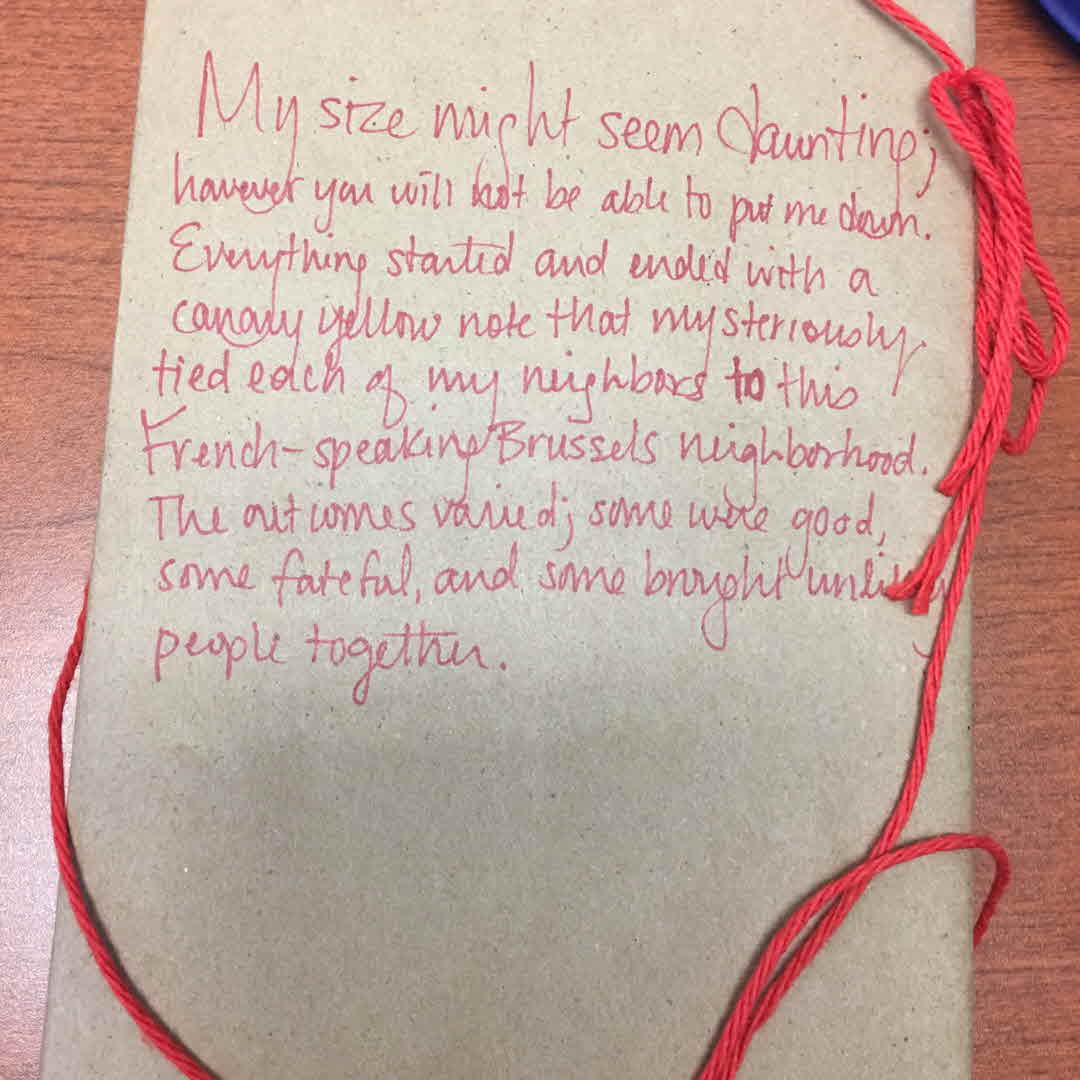 My size might seem daunting;
however you will not be able to put me down.
Everything started and ended with a
canary yellow note that mysteriously
tied each of my neighbors to this
French-speaking Brussels neighborhood.
The outcomes varied; some were good,
some fateful, and some brought
people together.